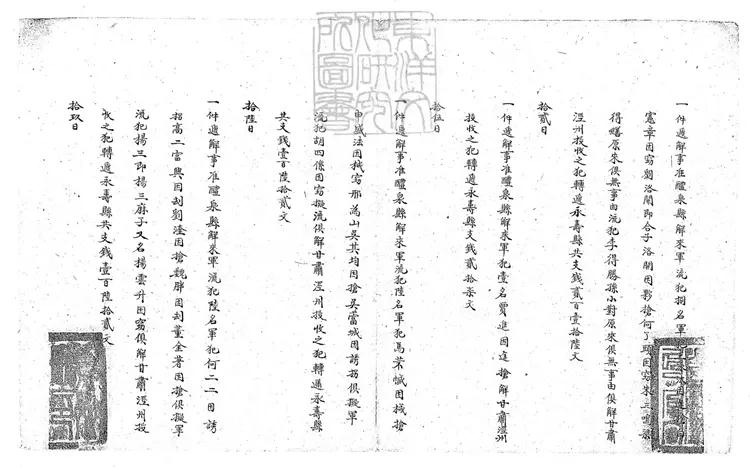 一件遞解事准醴泉縣解來軍流犯捌名軍
憲章因竊劉洛開即合子洛開因夥搶何丁頭因竊朱三
得膳原來俟無事由流犯李得勝孫小對原來俟無事由俱解甘肅
涇州投收之犯轉遞永壽縣共支錢貳百壹拾陸文
拾貳日
一件遞解事准醴泉縣解來軍犯壹名賈進因逩搶解甘肅涇州
投收之犯轉遞永壽縣支錢貳拾柒文
拾伍日
一件遞解事准醴泉縣解來軍流犯陸名軍犯馬芾懴因械搶
申盛法因械竊那萬山吳其均因搶吳當城因誘拐俱擬軍
流犯胡四保因竊擬流俱解甘肅涇州投收之犯轉遞永壽縣
共支錢壹百陸拾貳文
拾陸日
一件遞解事准醴泉縣解來軍流犯陸名軍犯何二二因誘
拐高二富興因刮劉澄因搶魏胖因刮董金著因搶俱擬軍
流犯揚三即揚三麻子又名揚雲升因竊俱解甘肅涇州投
收之犯轉遞永壽縣共支錢壹百陸拾貳文
拾玖日
東洋文化研究所圖書